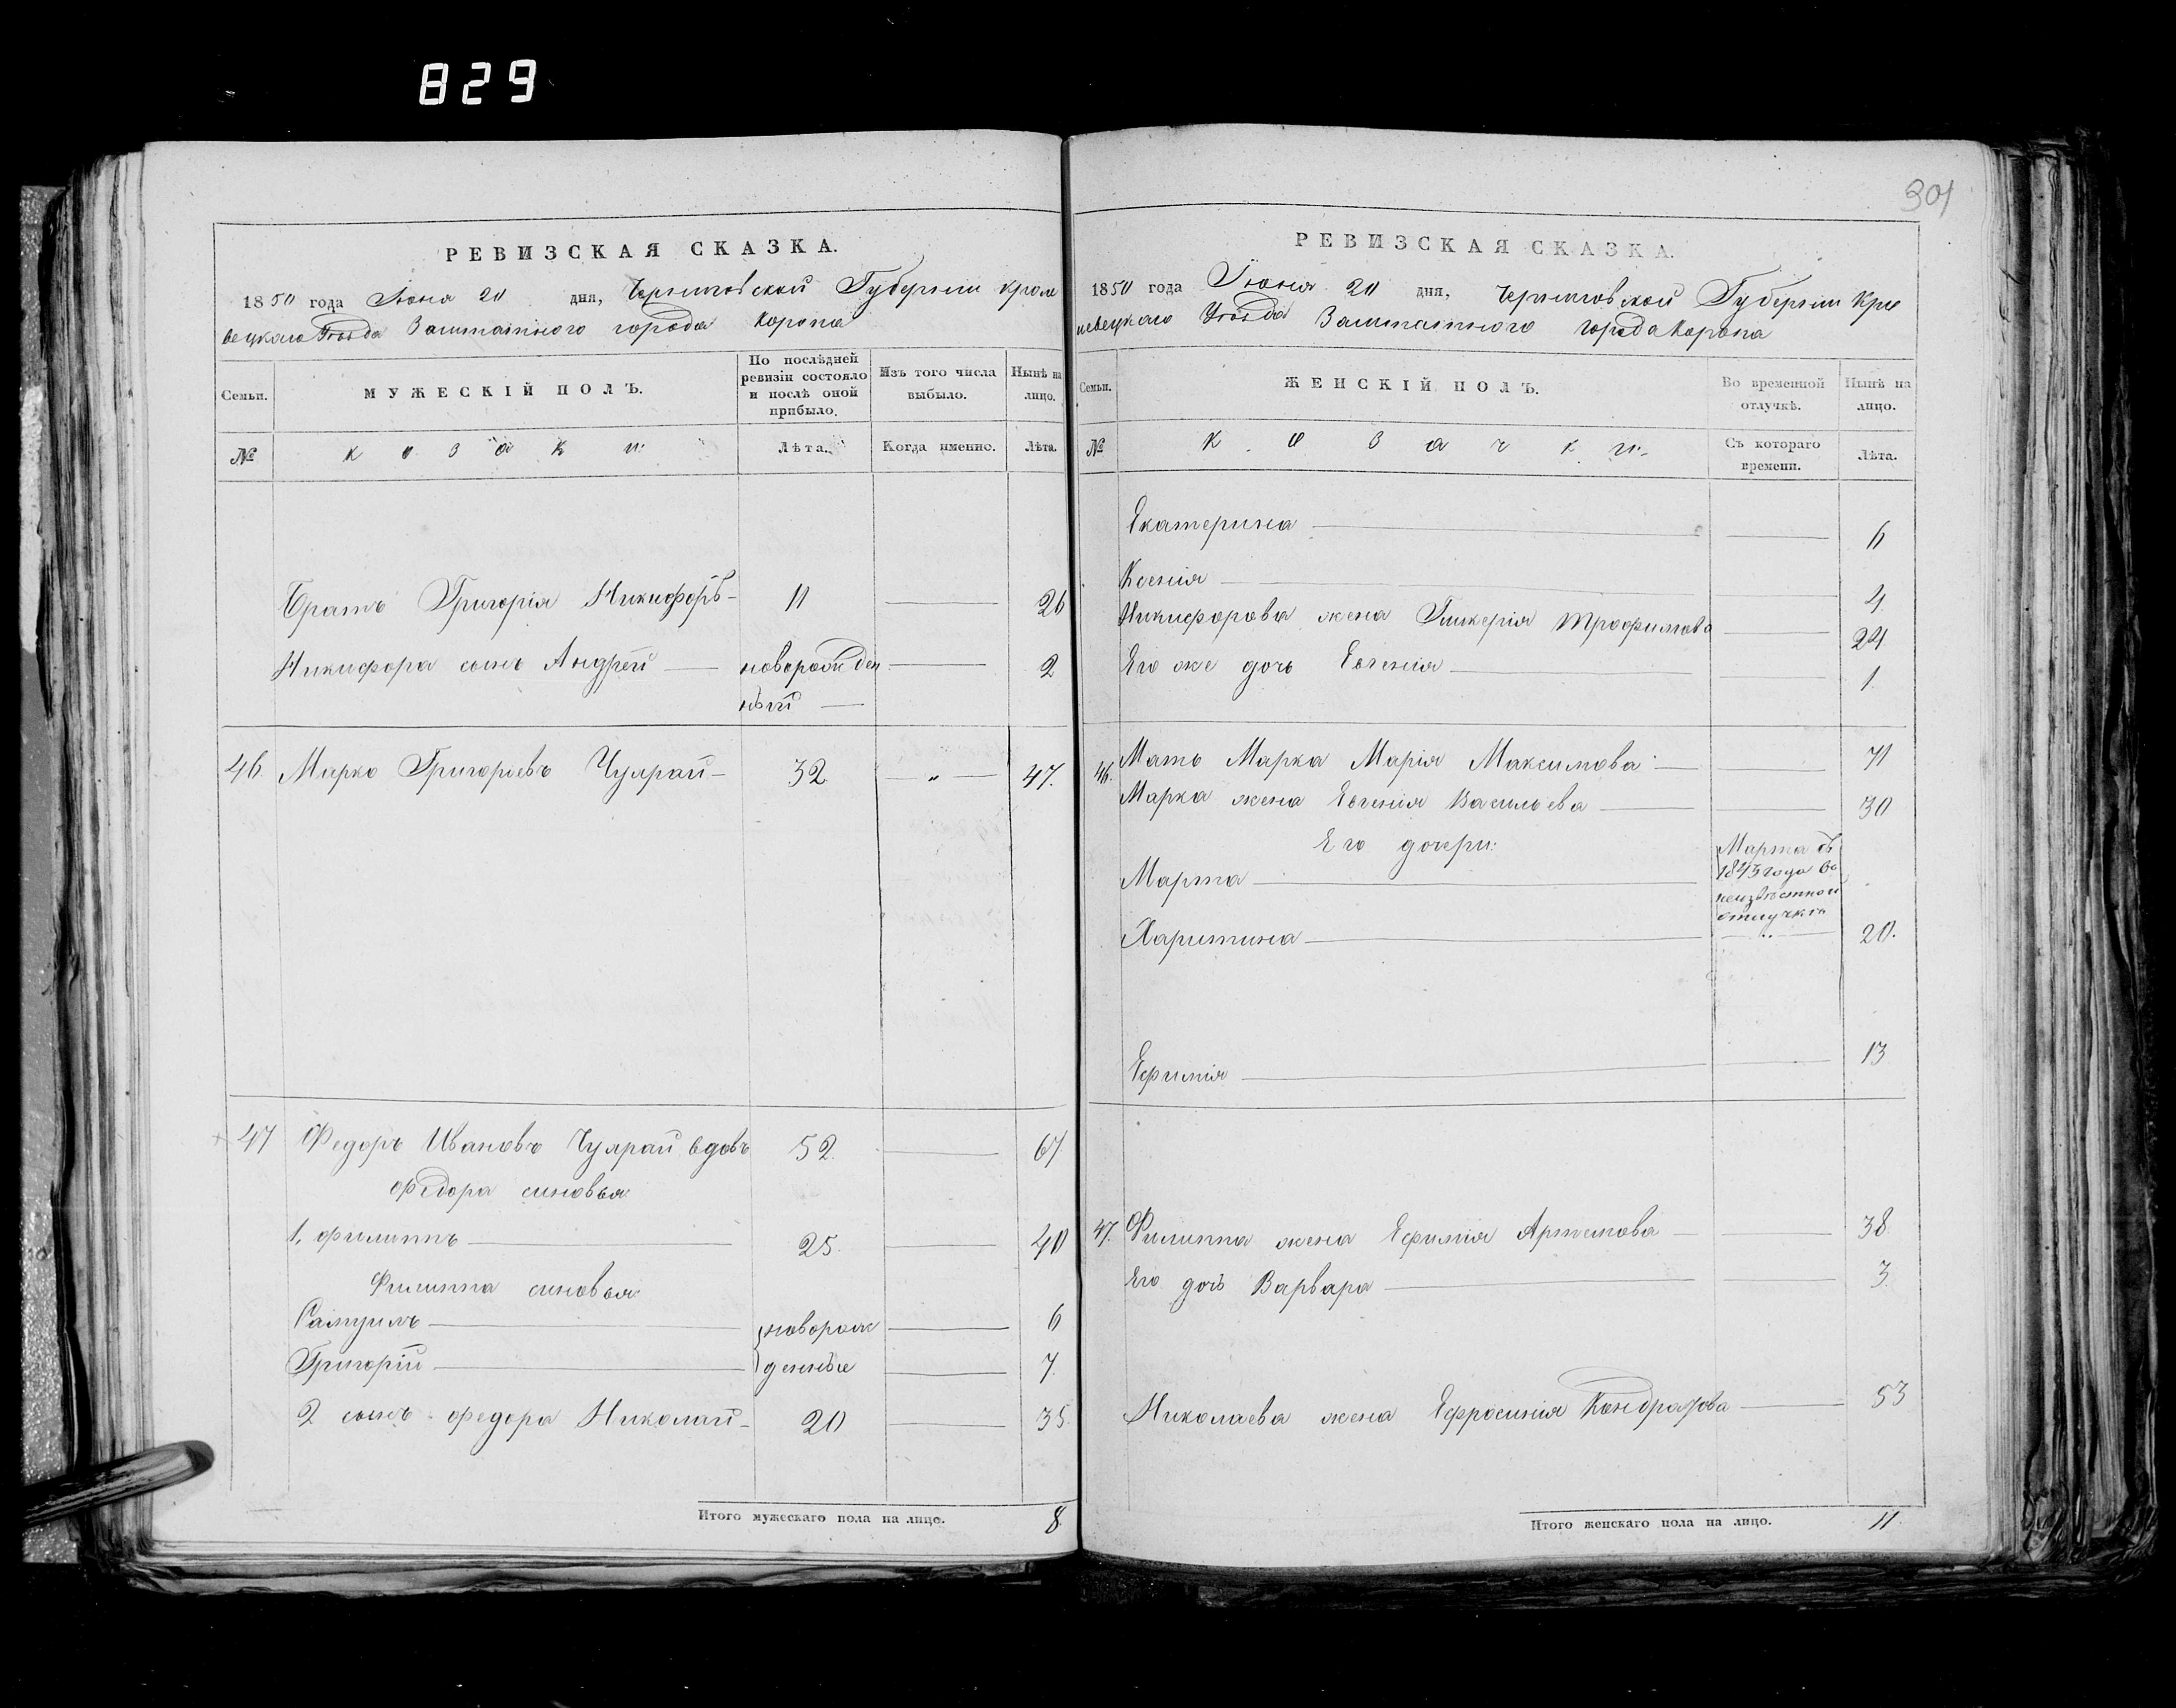 829
301
РЕВИЗСКАЯ СКАЗКА.
1850 года Июня 20 дня, Черниговской Губерніи Кроле
вецкаго Уѣзда Заштатного города Коропа
Семьи.
МУЖЕСКІЙ ПОЛЪ.
По послѣдней ревизіи состояло и послѣ оной прибыло.
Изъ того числа выбыло.
Нынѣ на лицо.
№
козаки
Лѣта.
Когда именно.
Лѣта.
Братъ Григорія Никифоръ 11 26
Никифора сынъ Андрей новорожден 2
ный
46. Марко Григорьевъ Чуярай 32 „ 47.
47 Федоръ Ивановъ Чуярай вдовъ 52. 67.
Федора синовья
1. Филиппъ 25. 40
Филиппа синовья
Самуилъ новорож 6
Григорій денные 7.
2 сынъ Федора Николай 20 35.
Итого мужескаго пола на лицо. 8
РЕВИЗСКАЯ СКАЗКА.
1850 года Июня 20 дня, Черниговской Губерніи Кро
левецкаго Уѣзда Заштатного города Коропа
Семьи.
ЖЕНСКІЙ ПОЛЪ.
Во временной отлучкѣ.
Нынѣ на лицо.
№
козачки
Съ котораго времени.
Лѣта.
Екатерина 6
Ксенія 4.
Никифорова жена Гликерія Трофимова 24
Его же дочь Евгенія 1.
46. Мать Марка Марія Максимова 71
Марка жена Евгенія Васильева 30
Его дочери:
Марта Марта съ
1845 года во
неизвѣстной
отлучкѣ
Харитина 20.
Ефимія 13
47. Филиппа жена Ефимія Артемова 38
Его дочь Варвара 3.
Николаева жена Ефросинія Кондратова 53
Итого женскаго пола на лицо. 11.